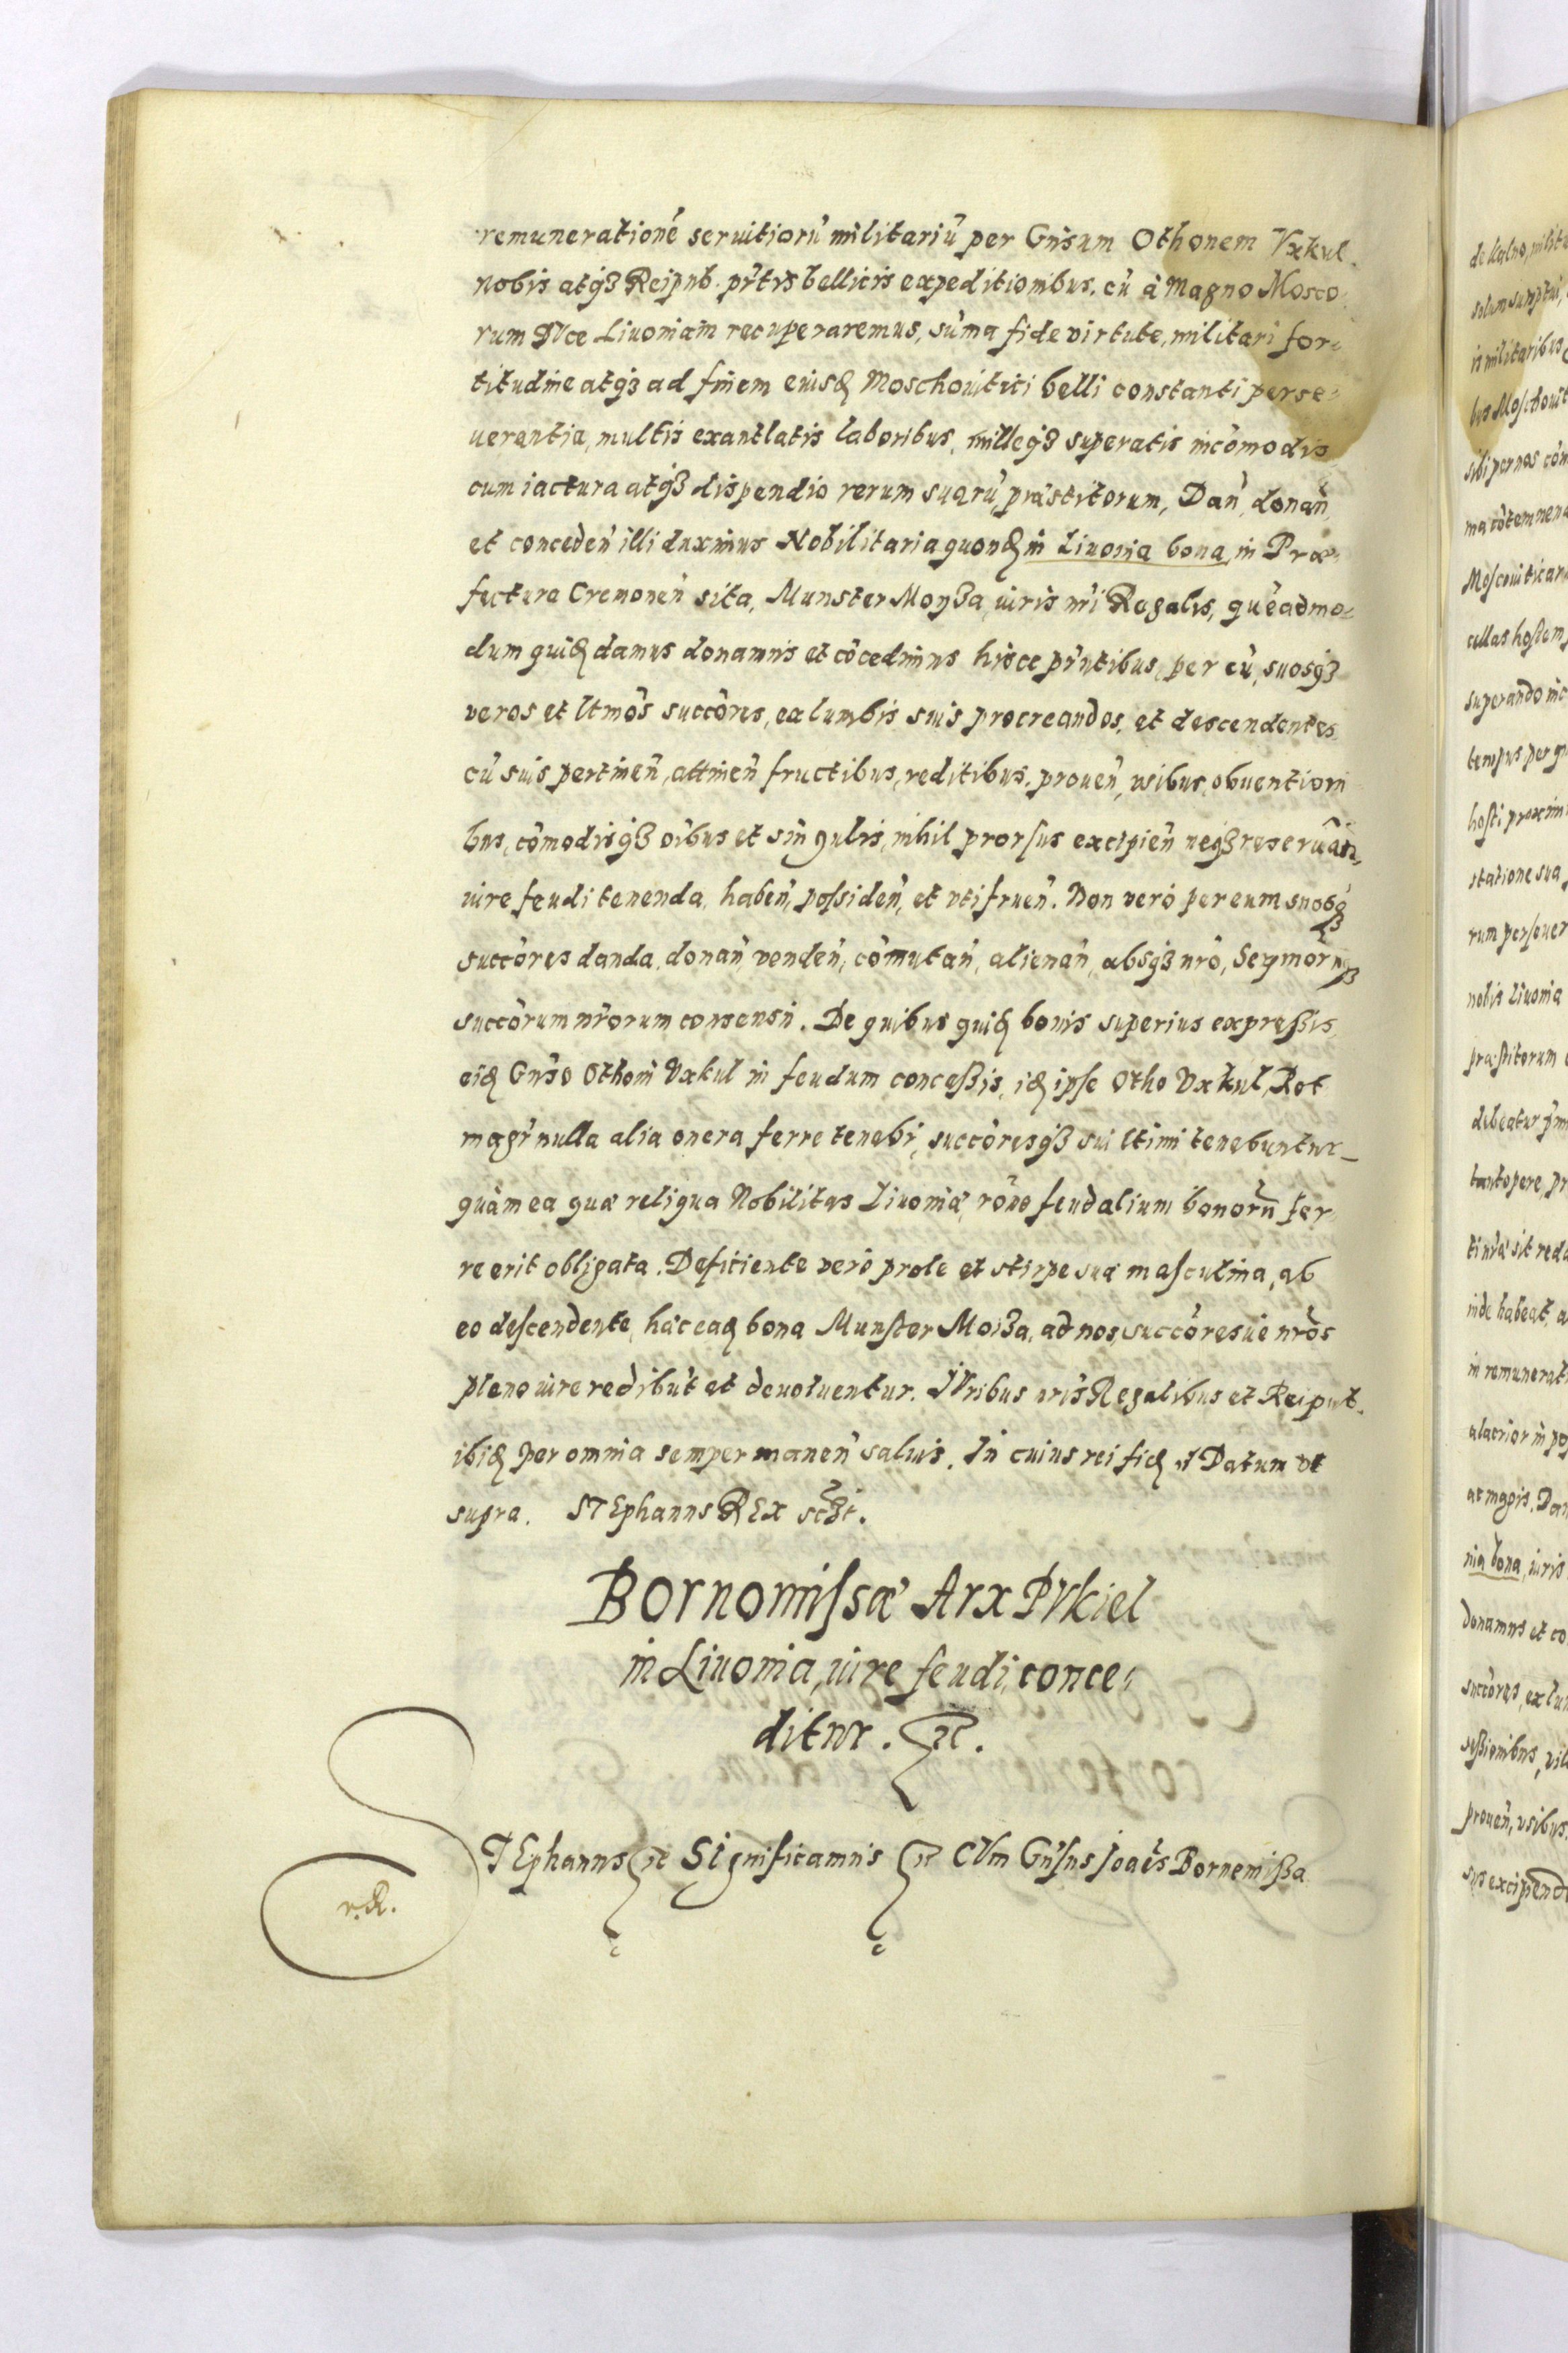 remunerationé seruitiorũ militariũ per Gnŝum Othonem Vxkul
nobis atq̃ꝫ Reipub. pr̃tis bellicis expeditionibus, cũ à Magno Mosco
rum DVce Liuoniam recuperaremus, sũma fide virtute, militari for⸗
titudine atq̃ꝫ ad finem eiusꝗ Moschouitici belli constanti perse⸗
uerantia, multis exantlatis laboribus, milleq̃ꝫ superatis incõmodis
cum iactura atq̃ꝫ dispendio rerum suarũ, præstitorum, Dañ, donañ,
et conceden̄ illi duximus Nobilitaria quonꝗ in Liuonia bona, in Præ⸗
fectura Cremonen̄ sita, Munster Moyʒa, iuris nr̃i Regalis, quẽadmo⸗
dum quiꝗ damus donamus et cõcedimus hisce pr̃ntibus, per eũ, suosq̃ꝫ
veros et ltmõs succõres, ex lumbis suis procreandos, et descendentes
cũ suis pertinen̄, attinen̄ fructibus, reditibus, prouen̄, vsibus, obuentioni
bus, cõmodisq̃ꝫ oĩbus et singulis, nihil prorſus excipien̄ neq̃ꝫ reseruañ,
iure feudi tenenda, haben̄, poſsiden̄, et vti fruen̄. Non verò per eum suosq̃ꝫ
succõres danda, donañ, venden̄, cõmutañ, alienañ, absq̃ꝫ nr̃o, Sermõrũqꝫ
succõrum nr̃orum consensu. De quibus quiꝗ bonis superius expreſsis,
eiꝗ Gnŝo Othoni Vxkul in feudum conceſsis, iꝗ ipſe Otho Vxkul, Rot
magr̃ nulla alia onera ferre tenebr̃, succõresq̃ꝫ sui ltimi tenebuntur
quàm ea quæ reliqua Nobilitas Liuoniæ, rõne feudalium bonorũ fer
re erit obligata. Deficiente verò prole et stirpe sua maſculina, ab
eo deſcendente, hæc eaꝗ bona Munſter Moiʒa, ad nos, succõresue nr̃os
pleno iure redibũt et deuoluentur. IVribus nr̃is Regalibus et Reipub.
ibiꝗ per omnia semper manen̄ saluis. In cuius rei fiꝗ ꝛc Datum vt
supra. STEphanus REx sc̃ꝫt.
Bornomiſsæ Arx PVkiel
in Liuonia, iure feudi, conce⸗
ditur. ꝛc.
STEphanus ꝛc Significamus ꝛc CVm Gnŝus Joañes Bornemiſsa
r.R.
de
solum sumptui,
is militaribus
bus Moſchouit
sibi per nos cõm
ma cõtemnena
Moſcouiticar
cellas hoſtem
superando inc
tempus per
hoſti proxim
statione sua
rum perſeuer
nobis Liuonia
præſtitorum
debeatur
tantopere, pr
ti nr̃æ sit reda
inde habeat, a
in remunerati
alacrior in po
at magis. Dan
nia bona, iuris
donamus et co
succõres, ex lum
seſsionibus, vil
prouen̄, vsibus,
sus excipendo